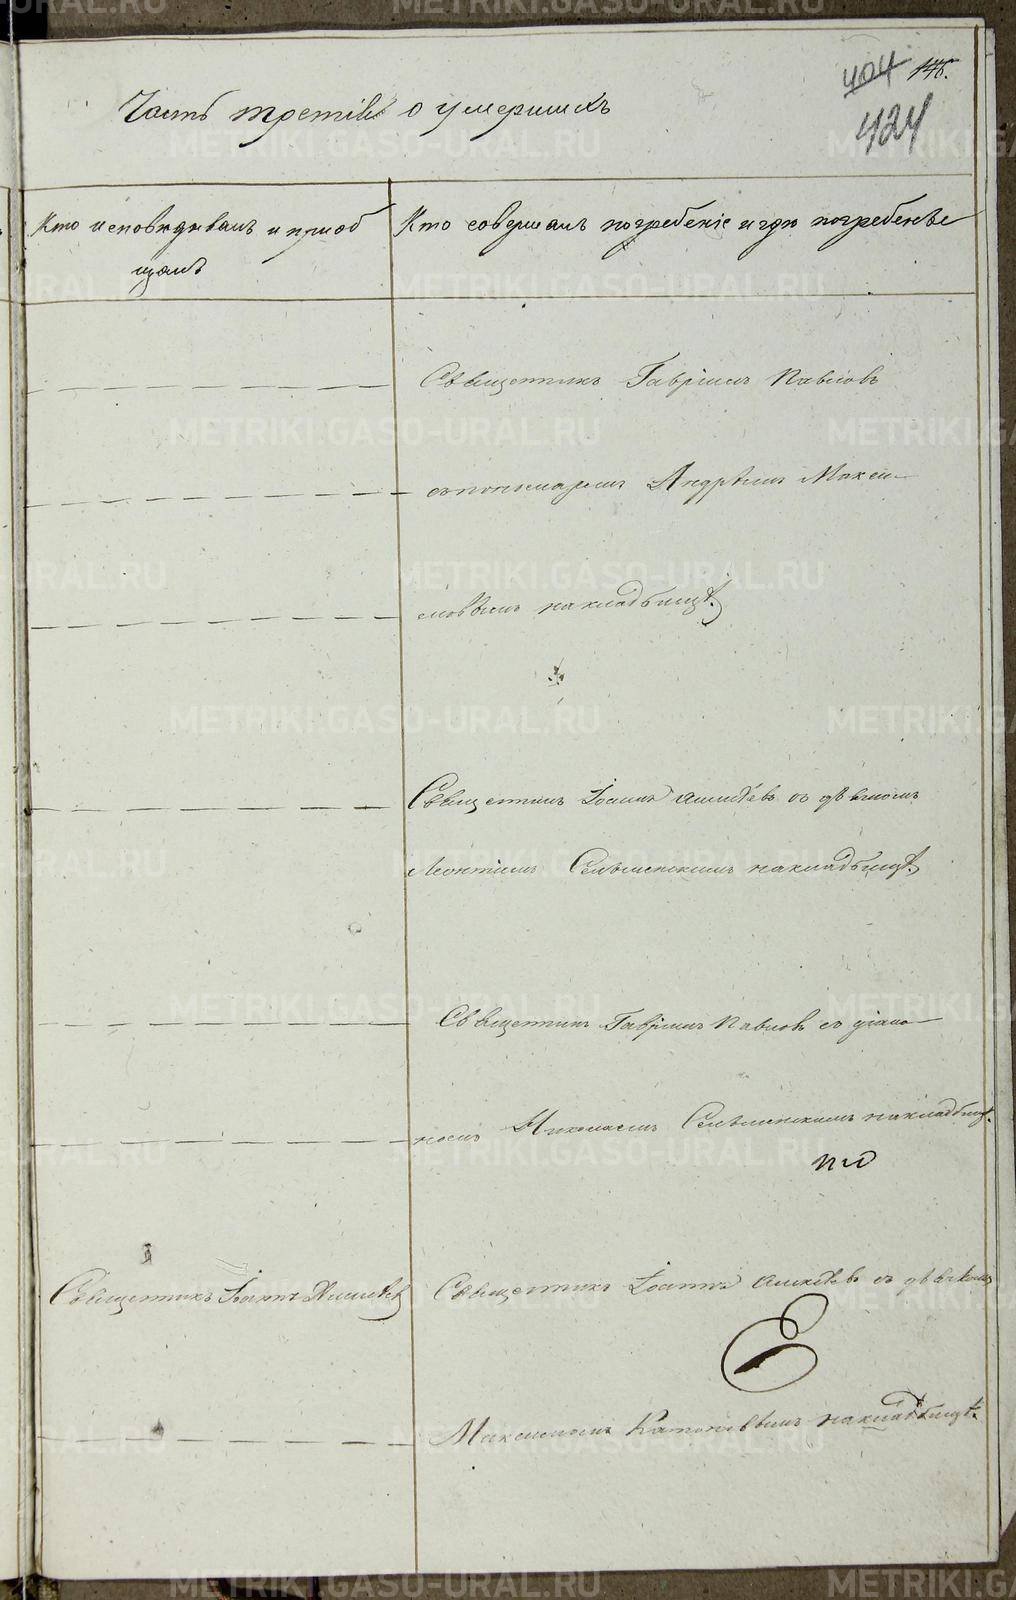 404 146.
424
Часть третія о умершихъ
Кто исповѣдывалъ и приоб
щалъ
Кто совершалъ погребеніе и гдѣ погребены
Священникъ Гавріилъ Павловъ
съ пономаремъ Андреемъ Макси-
мовымъ на кладбищѣ.
Священникъ Іоаннъ Алексѣевъ съ дьячкомъ
Леонтіемъ Селѣменскимъ на кладбищѣ.
Священникъ Гавріилъ Павловъ съ діако-
номъ Николаемъ Селѣменскимъ на кладбищѣ.
Священникъ Іоаннъ Алексѣевъ
Священникъ Іоаннъ Алексѣевъ съ дьячкомъ
Максимомъ на кладбищѣ.
METRIKI.GASO-URAL.RU